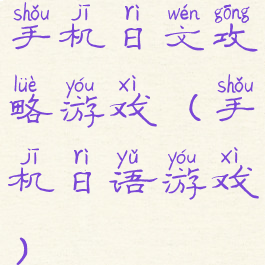 shǒu jī rì wén gōng
手机日文攻
lüè yóu xì shǒu
略游戏(手
jī rì yǔ yóu xì
机日语游戏
)